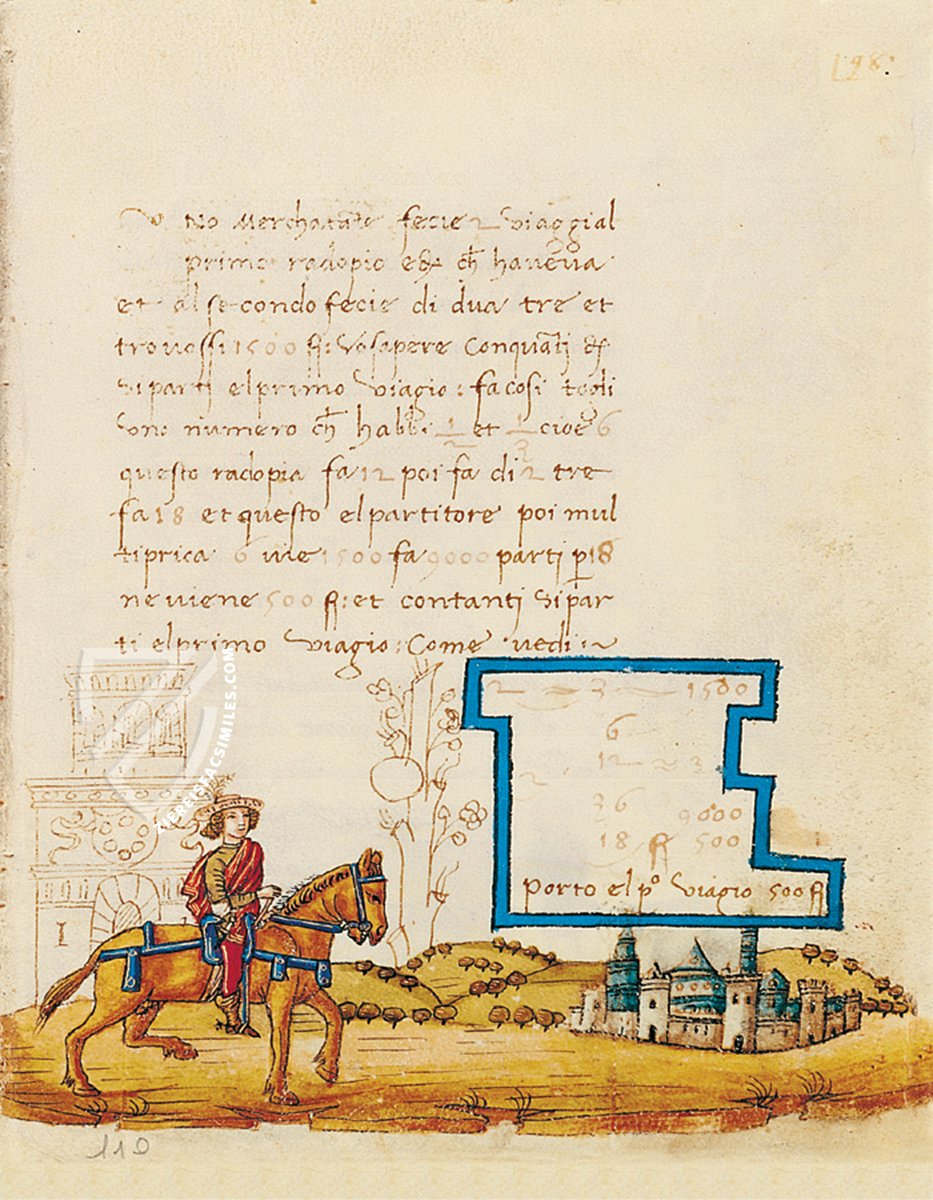 198
Uno Merchatāte fecie 2 viaggi al
primo radopio e ch̄ haveva
et al secondo fecie di dua tre et
trovossi 1500 ff: vo sapere Conquātj ff
si partj el primo viagio: fa cosi togli
uno numero ch̄ habbi 1/2 et 1/3 cioe 6
questo radopia fa 12 poi fa di 2 tre
fa 18 et questo el partitore poi mul
tiprica 6 vie 1500 fa 9000 partj p 18
ne viene 500 ff: et contantj si par
ti el primo viagio: Come vedi
2 3 1500
6
2 12 3
36 9000
18 ff 500
porto el pº viagio 500 ff
WWW.ZIEREISFACSIMILES.COM
110